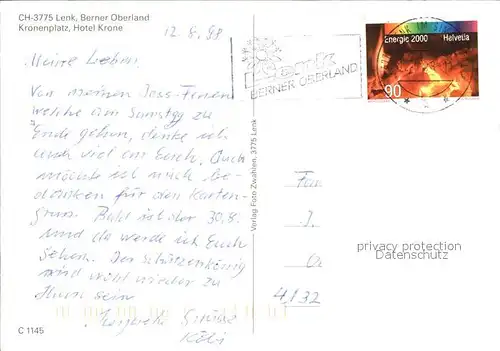 CH-3775 Lenk, Berner Oberland
Kronenplatz, Hotel Krone
12.8.98
Meine Lieben!
Von meinen Jass-Ferien
welche am Samstag zu
Ende gehen, denke ich
auch viel an Euch. Auch
möchte ich mich be-
danken für den Karten-
gruss. Bald ist der 30.8.
und da werde ich Euch
sehen. Der Schützenkönig
wird wohl wieder zu
sein
C 1145
Verlag Foto Zwahlen, 3775 Lenk
Lenk
BERNER OBERLAND
Energie 2000 Helvetia
90
Fam
J.
4132
privacy protection
Datenschutz